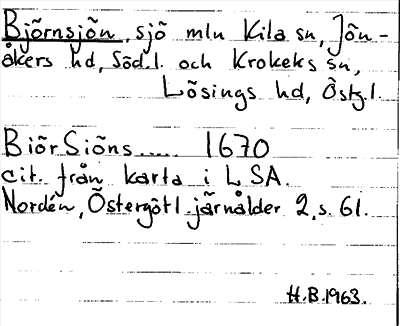 Björnsjön, sjö mln Kila sn, Jön-
åkers hd, Söd.l. och Krokeks sn,
Lösings hd, Östg.l.
Biör Siöns..... 1670
cit. från karta i LSA.
Nordén, Östergötl. järnålder 2, s. 61.
H.B. 1963.